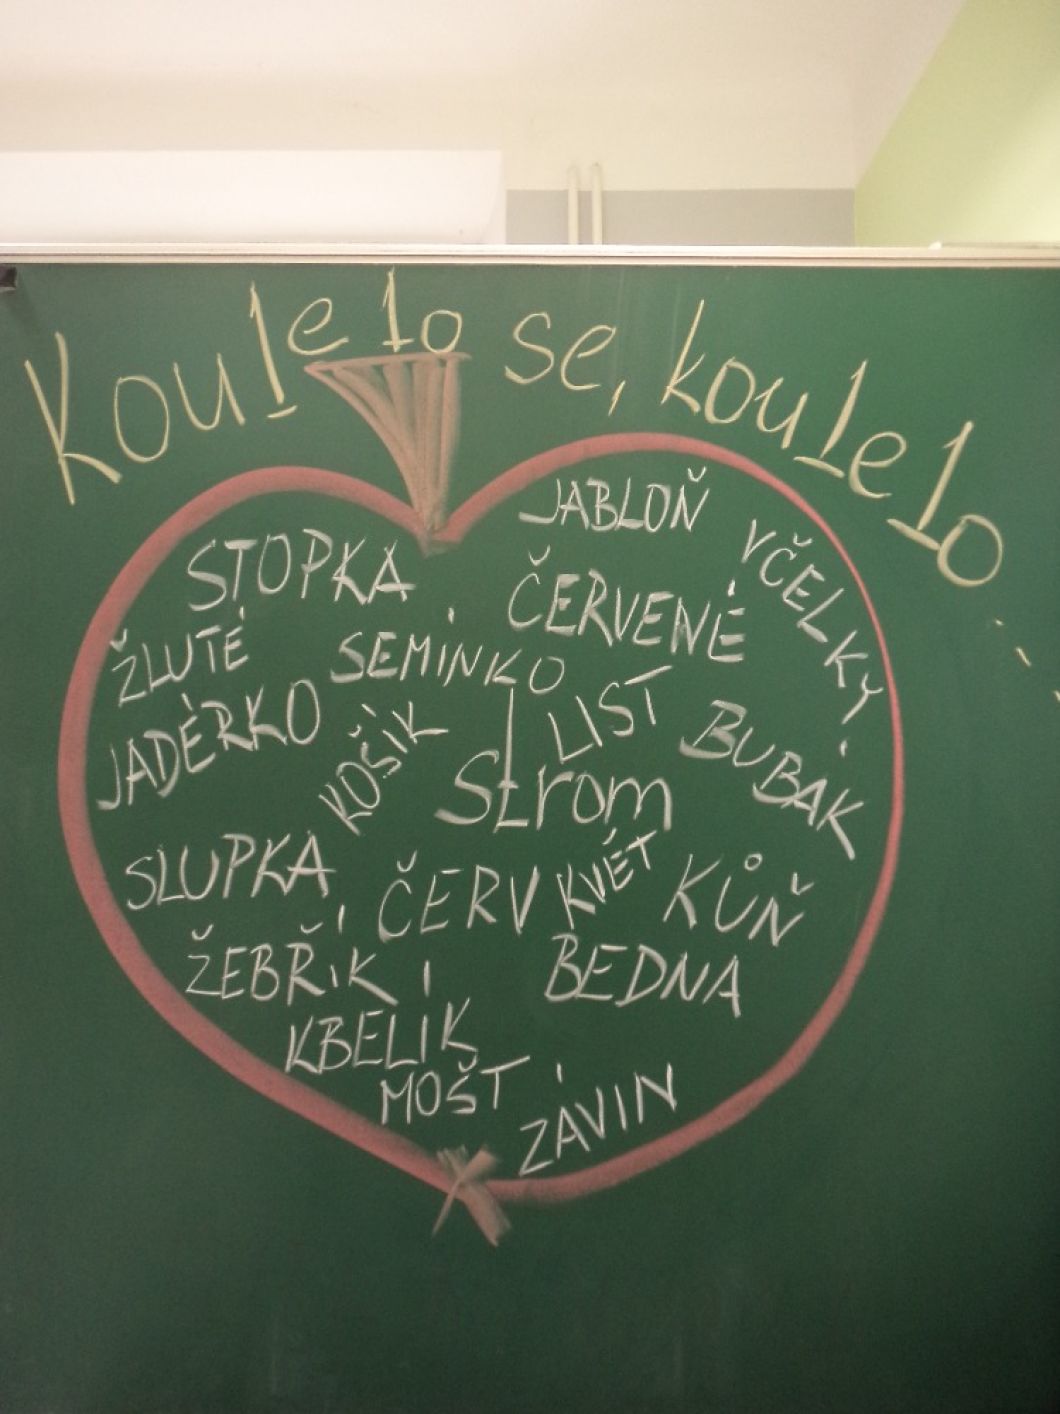 Koulelo se, koulelo...
JABLOŇ
STOPKA
ČERVENÉ
VČELKY
ŽLUTÉ
SEMÍNKO
JADÉRKO
KOŠÍK
LIST
BUBÁK
Strom
SLUPKA
ČERV
KVĚT
KŮŇ
ŽEBŘÍK
BEDNA
KBELÍK
MOŠT
ZÁVIN